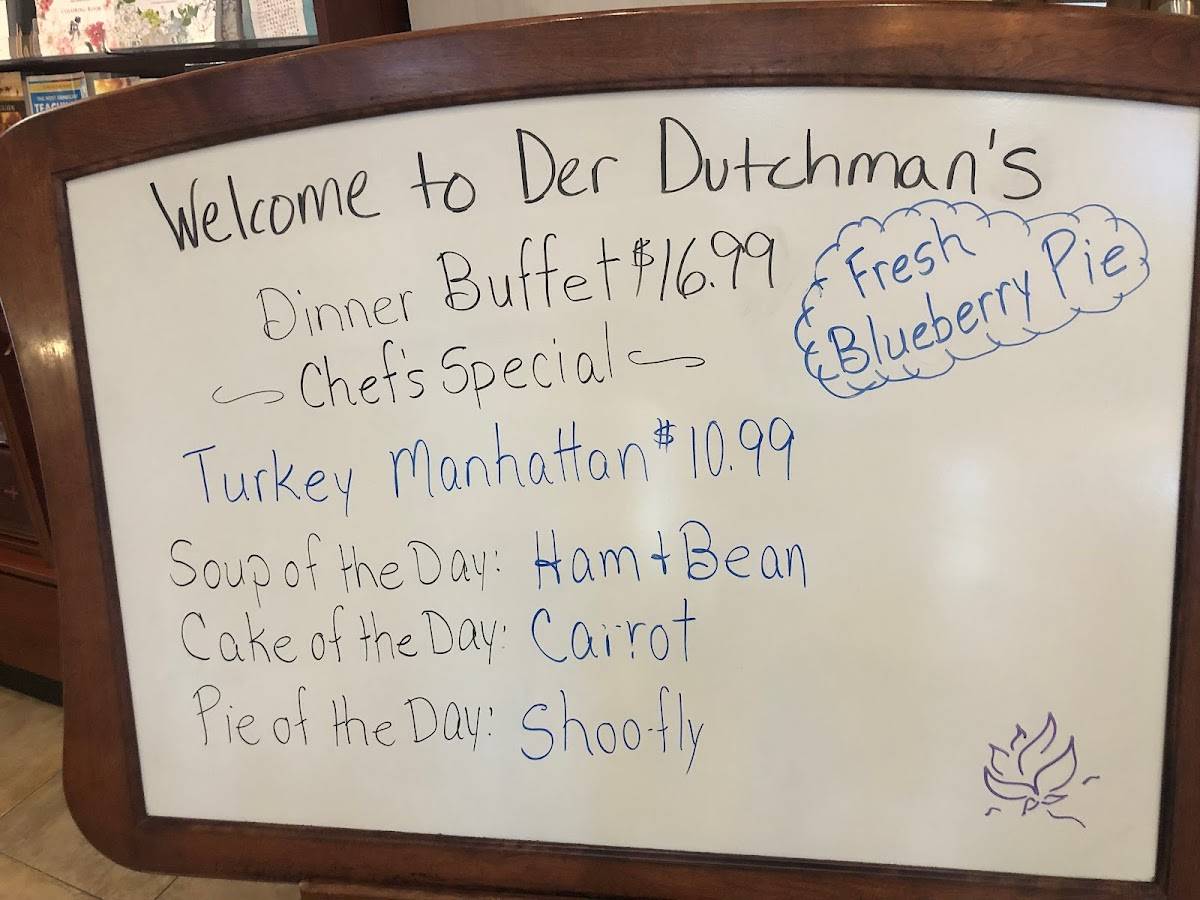 COLORING BOOK
TEACHING
Welcome to Der Dutchman's
Dinner Buffet $16.99
Fresh
Blueberry Pie
Chef's Special
Turkey Manhattan $10.99
Soup of the Day: Ham + Bean
Cake of the Day: Carrot
Pie of the Day: Shoo-fly